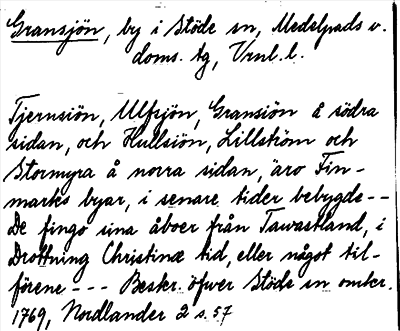 Gransjön, by i Stöde sn, Medelpads v.
doms. tg, Vrnl. l.
Tjernsiön, Ulfsjön, Gransiön å södra
sidan, och Hullsiön, Lillström och
Stormyra å norra sidan, äro Fin-
marks byar, i senare tider bebygde--
De fingo sina åboer från Tawastland, i
Drottning Christinæ tid, eller något til-
förene --- Beskr. öfwer Stöde sn omkr.
1769, Nordlander 2 s. 57